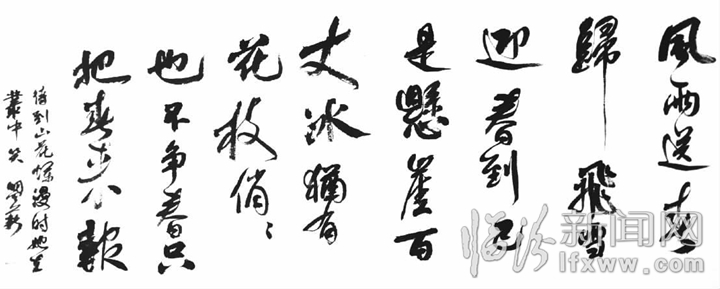 風雨送春
歸飛雪
迎春到已
是懸崖百
丈冰猶有
花枝俏〻
也不争春只
把春来報
待到山花爛漫时她在
叢中笑
临汾新闻网
lfxww.com